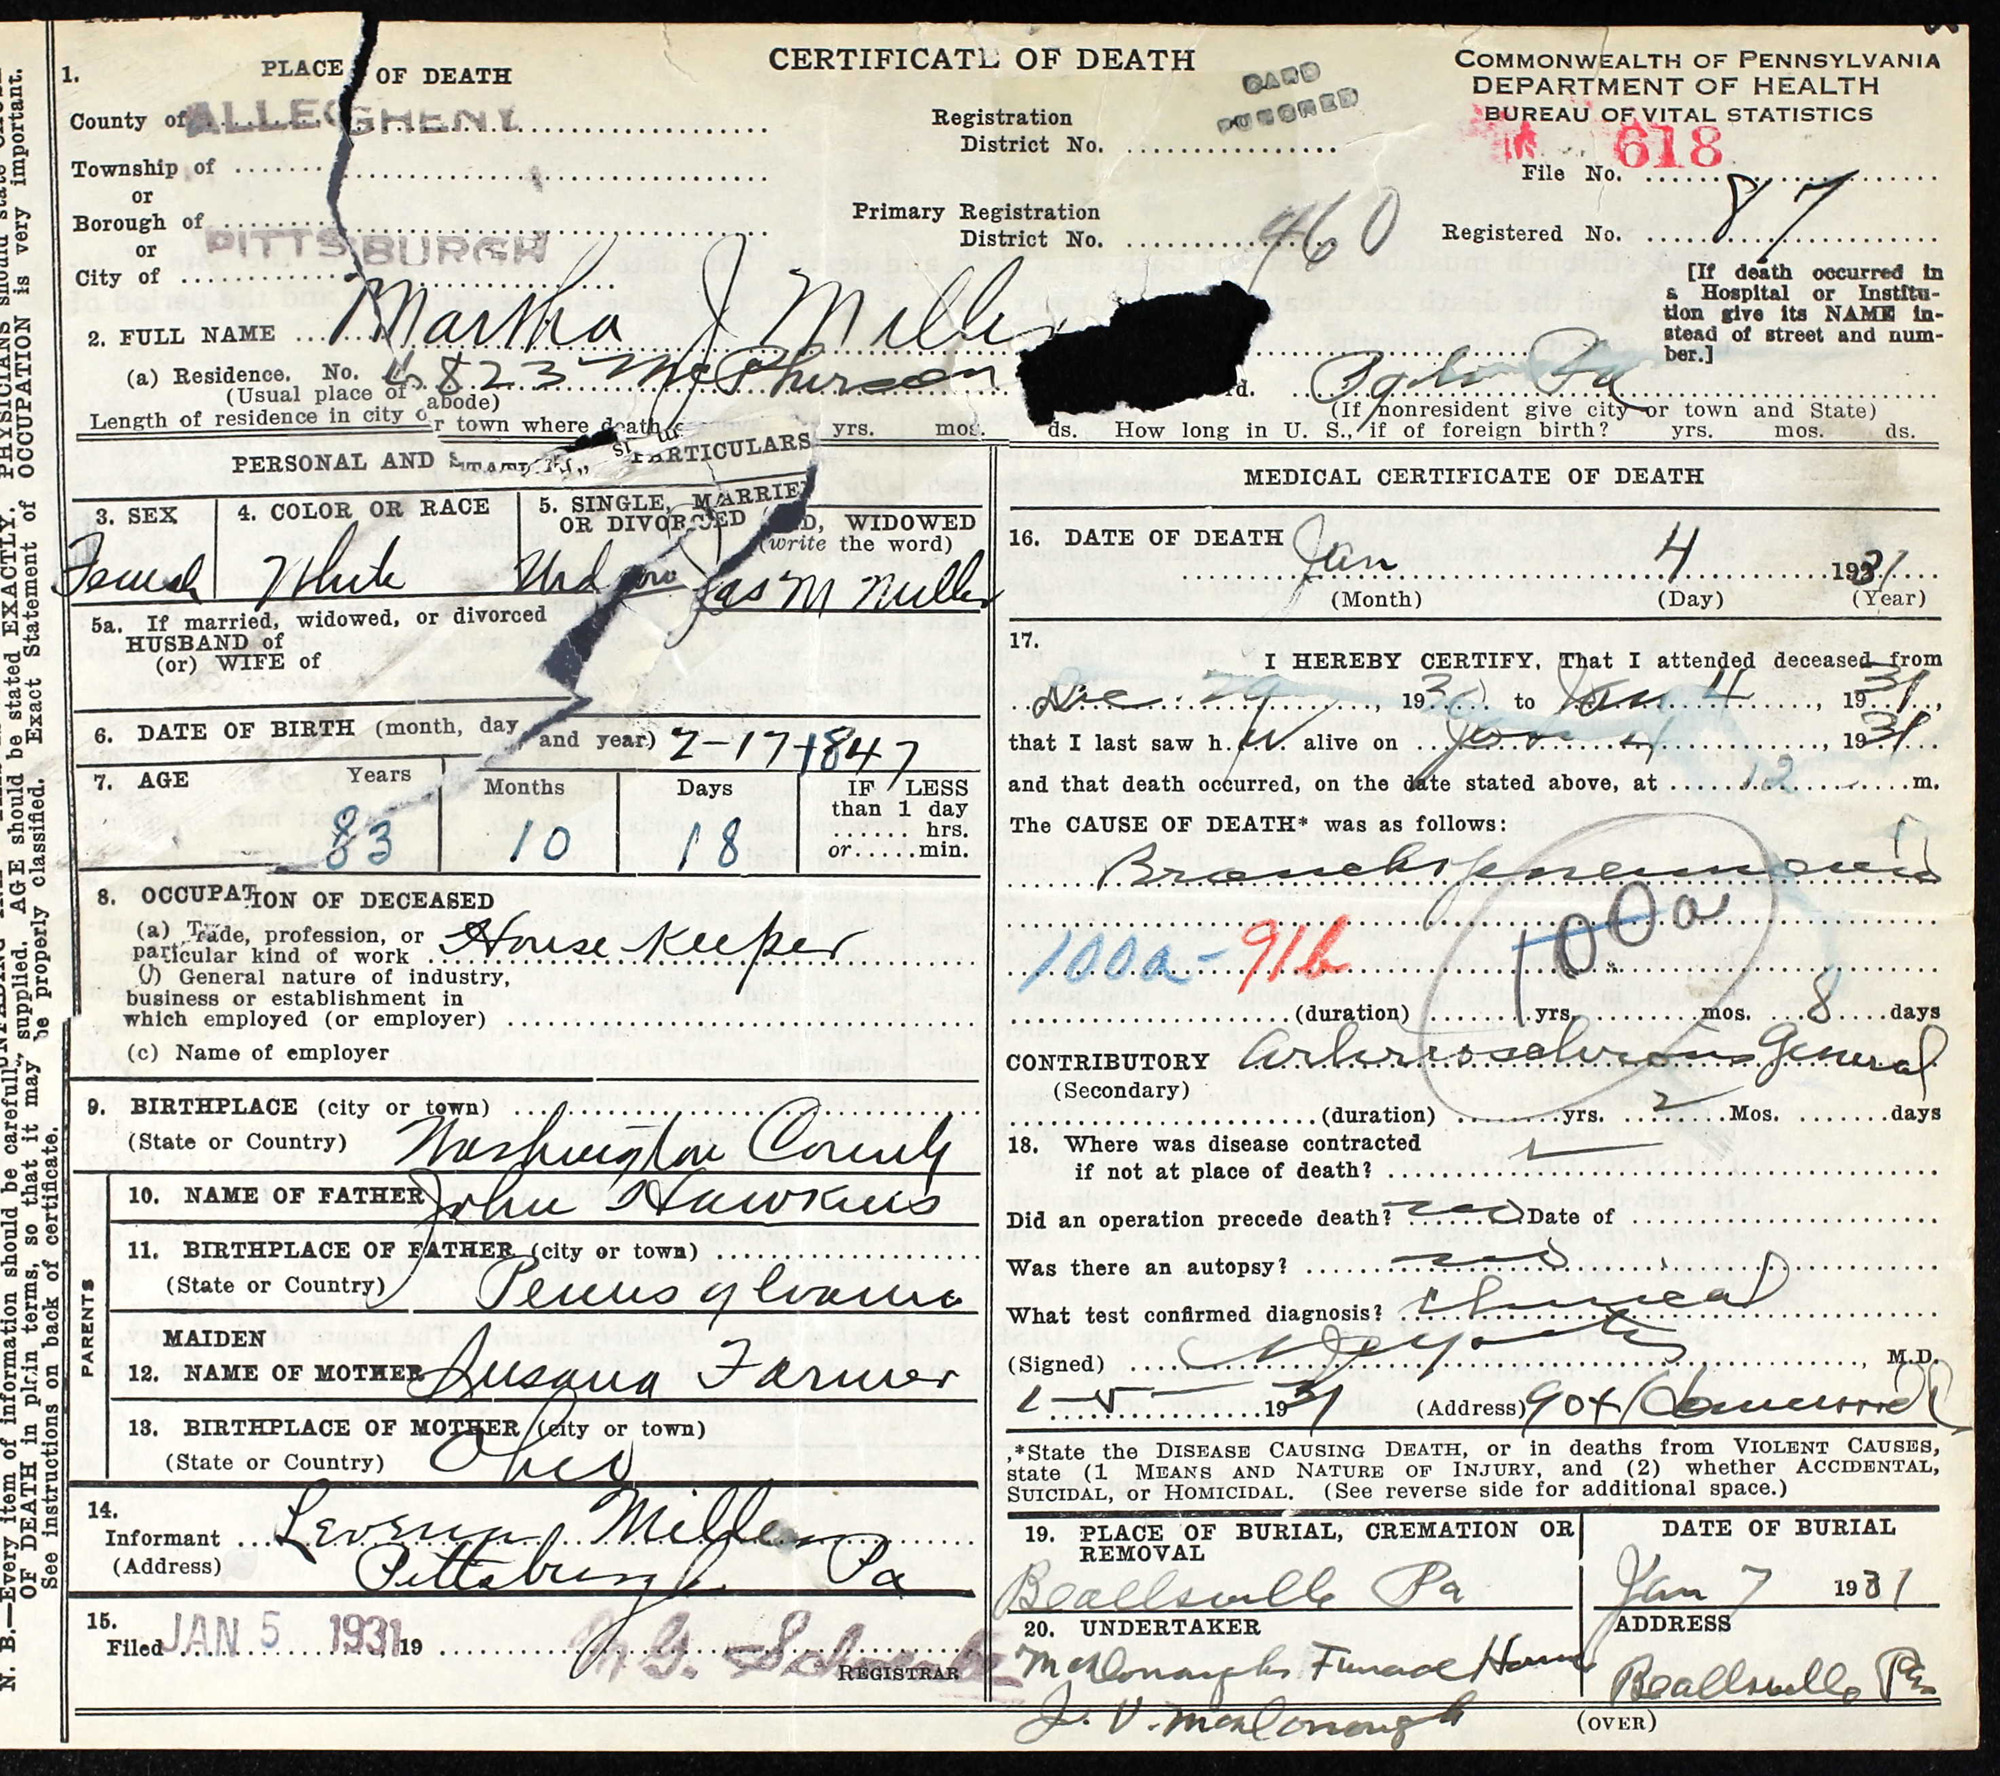 CERTIFICATE OF DEATH
COMMONWEALTH OF PENNSYLVANIA
DEPARTMENT OF HEALTH
BUREAU OF VITAL STATISTICS
CARD PUNCHED
618
File No.
Registered No. 87
[If death occurred in
a Hospital or Institu-
tion give its NAME in-
stead of street and num-
ber.]
1. PLACE OF DEATH
County of ALLEGHENY
Township of
or
Borough of
or
City of PITTSBURGH
Registration
District No.
Primary Registration
District No. 460
2. FULL NAME Martha J Mille
(a) Residence. No. 6823 McPherson
(Usual place of abode)
d. Pgh Pa
(If nonresident give city or town and State)
Length of residence in city or town where death yrs. mos. ds. How long in U. S., if of foreign birth? yrs. mos. ds.
PERSONAL AND STATISTICAL PARTICULARS
3. SEX
Female
4. COLOR OR RACE
White
5. SINGLE, MARRIED, WIDOWED
OR DIVORCED (write the word)
Widow Jas M Miller
5a. If married, widowed, or divorced
HUSBAND of
(or) WIFE of
6. DATE OF BIRTH (month, day and year) 2-17-1847
7. AGE Years Months Days
83 10 18
IF LESS
than 1 day
hrs.
or min.
8. OCCUPATION OF DECEASED
(a) Trade, profession, or
particular kind of work House Keeper
(b) General nature of industry,
business or establishment in
which employed (or employer)
(c) Name of employer
9. BIRTHPLACE (city or town)
(State or Country) Washington County
PARENTS
10. NAME OF FATHER John Hawkins
11. BIRTHPLACE OF FATHER (city or town)
(State or Country) Pennsylvania
MAIDEN
12. NAME OF MOTHER Susana Farmer
13. BIRTHPLACE OF MOTHER (city or town)
(State or Country) Ohio
14.
Informant Leverna Miller
(Address) Pittsburgh Pa
15.
Filed JAN 5 1931 19
REGISTRAR
MEDICAL CERTIFICATE OF DEATH
16. DATE OF DEATH
Jan 4 1931
(Month) (Day) (Year)
17.
I HEREBY CERTIFY, That I attended deceased from
Dec 1930 to Jan 4, 1931,
that I last saw her alive on Jan 4, 1931
and that death occurred, on the date stated above, at 12 m.
The CAUSE OF DEATH* was as follows:
Bronchopneumonia
100a
100a-91b
(duration) yrs. mos. 8 days
CONTRIBUTORY Arteriosclerosis General
(Secondary)
(duration) yrs. 2 Mos. days
18. Where was disease contracted
if not at place of death?
Did an operation precede death? no Date of
Was there an autopsy? no
What test confirmed diagnosis? Clinical
(Signed) , M.D.
1-5 1931 (Address) 904
*State the DISEASE CAUSING DEATH, or in deaths from VIOLENT CAUSES,
state (1 MEANS AND NATURE OF INJURY, and (2) whether ACCIDENTAL,
SUICIDAL, or HOMICIDAL. (See reverse side for additional space.)
19. PLACE OF BURIAL, CREMATION OR
REMOVAL
Beallsville Pa
DATE OF BURIAL
Jan 7 1931
20. UNDERTAKER
McDonoughs Funeral Home
J. V. McDonough
ADDRESS
Beallsville Pa
(OVER)
supplied. AGE should be stated EXACTLY. PHYSICIANS should state
OF DEATH in plain terms, so that it may be properly classified. Exact Statement of OCCUPATION is very important.
See instructions on back of certificate.